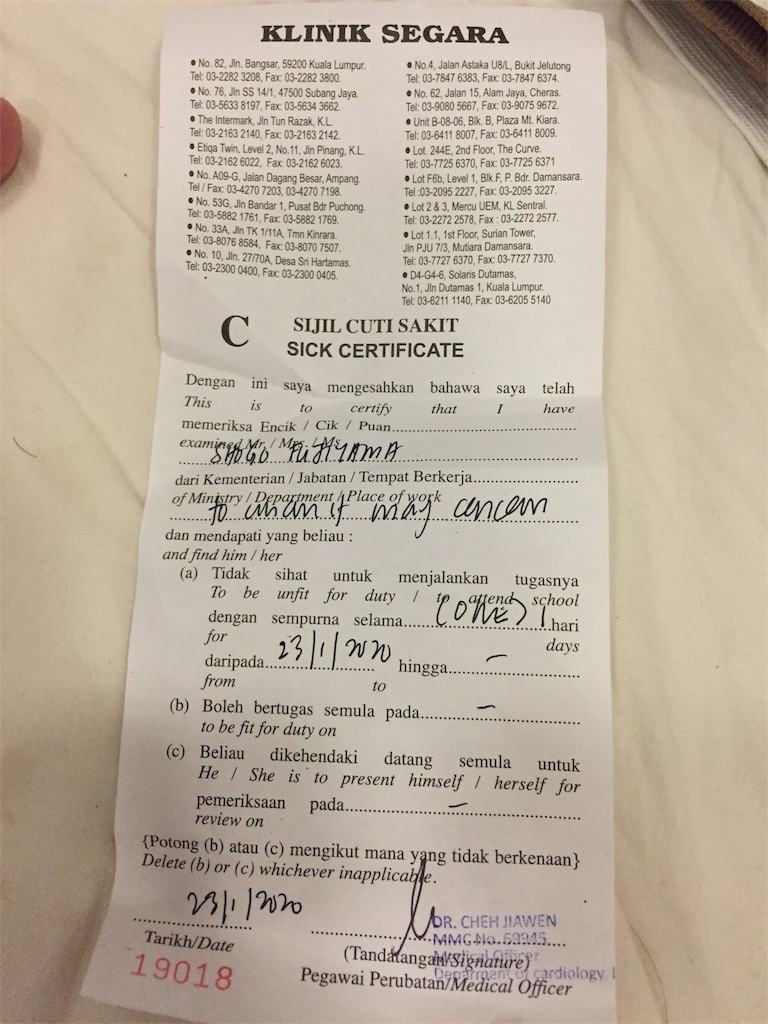 KLINIK SEGARA
• No. 82, Jln. Bangsar, 59200 Kuala Lumpur.
Tel: 03-2282 3208, Fax: 03-2282 3800.
• No. 76, Jln SS 14/1, 47500 Subang Jaya.
Tel: 03-5633 8197, Fax: 03-5634 3662.
• The Intermark, Jln Tun Razak, K.L.
Tel: 03-2163 2140, Fax: 03-2163 2142.
• Etiqa Twin, Level 2, No.11, Jln Pinang, K.L.
Tel: 03-2162 6022, Fax: 03-2162 6023.
• No. A09-G, Jalan Dagang Besar, Ampang.
Tel / Fax: 03-4270 7203, 03-4270 7198.
• No. 53G, Jln Bandar 1, Pusat Bdr Puchong.
Tel: 03-5882 1761, Fax: 03-5882 1769.
• No. 33A, Jln TK 1/11A, Tmn Kinrara.
Tel: 03-8076 8584, Fax: 03-8070 7507.
• No. 10, Jln. 27/70A, Desa Sri Hartamas.
Tel: 03-2300 0400, Fax: 03-2300 0405.
• No.4, Jalan Astaka U8/L, Bukit Jelutong
Tel: 03-7847 6383, Fax: 03-7847 6374.
• No. 62, Jalan 15, Alam Jaya, Cheras.
Tel: 03-9080 5667, Fax: 03-9075 9672.
• Unit B-08-06, Blk. B, Plaza Mt. Kiara.
Tel: 03-6411 8007, Fax: 03-6411 8009.
• Lot. 244E, 2nd Floor, The Curve.
Tel: 03-7725 6370, Fax: 03-7725 6371
• Lot F6b, Level 1, Blk.F, P. Bdr. Damansara.
Tel :03-2095 2227, Fax: 03-2095 3227.
• Lot 2 & 3, Mercu UEM, KL Sentral.
Tel: 03-2272 2578, Fax : 03-2272 2577.
• Lot 1.1, 1st Floor, Surian Tower,
Jln PJU 7/3, Mutiara Damansara.
Tel: 03-7727 6370, Fax: 03-7727 7370.
• D4-G4-6, Solaris Dutamas,
No.1, Jln Dutamas 1, Kuala Lumpur.
Tel: 03-6211 1140, Fax: 03-6205 5140
C SIJIL CUTI SAKIT
SICK CERTIFICATE
Dengan ini saya mengesahkan bahawa saya telah
This is to certify that I have
memeriksa Encik / Cik / Puan
examined Mr. / Mrs. / Ms
SHOGO FUJIYAMA
dari Kementerian / Jabatan / Tempat Berkerja
of Ministry / Department / Place of work
to whom it may concern
dan mendapati yang beliau :
and find him / her
(a) Tidak sihat untuk menjalankan tugasnya
To be unfit for duty / to attend school
dengan sempurna selama (ONE) 1 hari
for days
daripada 23/1/2020 hingga –
from to
(b) Boleh bertugas semula pada –
to be fit for duty on
(c) Beliau dikehendaki datang semula untuk
He / She is to present himself / herself for
pemeriksaan pada –
review on
{Potong (b) atau (c) mengikut mana yang tidak berkenaan}
Delete (b) or (c) whichever inapplicable.
23/1/2020
Tarikh/Date
19018
DR. CHEH JIAWEN
MMC No.
Medical Officer
Department of cardiology,
(Tandatangan/Signature)
Pegawai Perubatan/Medical Officer